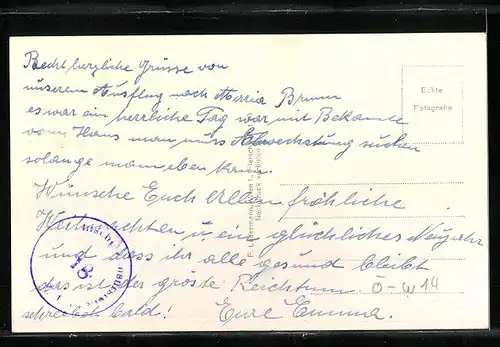 Recht herzliche Grüsse von
unserem Ausflug nach Marria Brunn
es war ein herrliche Tag war mit Bekannte
vom Haus man muss Abwechstung suchen
solange man eben kann.
Wünsche Euch Allen fröhliche
Weihnachten u. ein glückliches Neujahr
und dass ihr alle gesund bleibt
das ist der gröste Reichtum.
schreibet bald! Eure Emma.
Echte
Fotografie
Nachdruck verboten
18
Ö-W 14